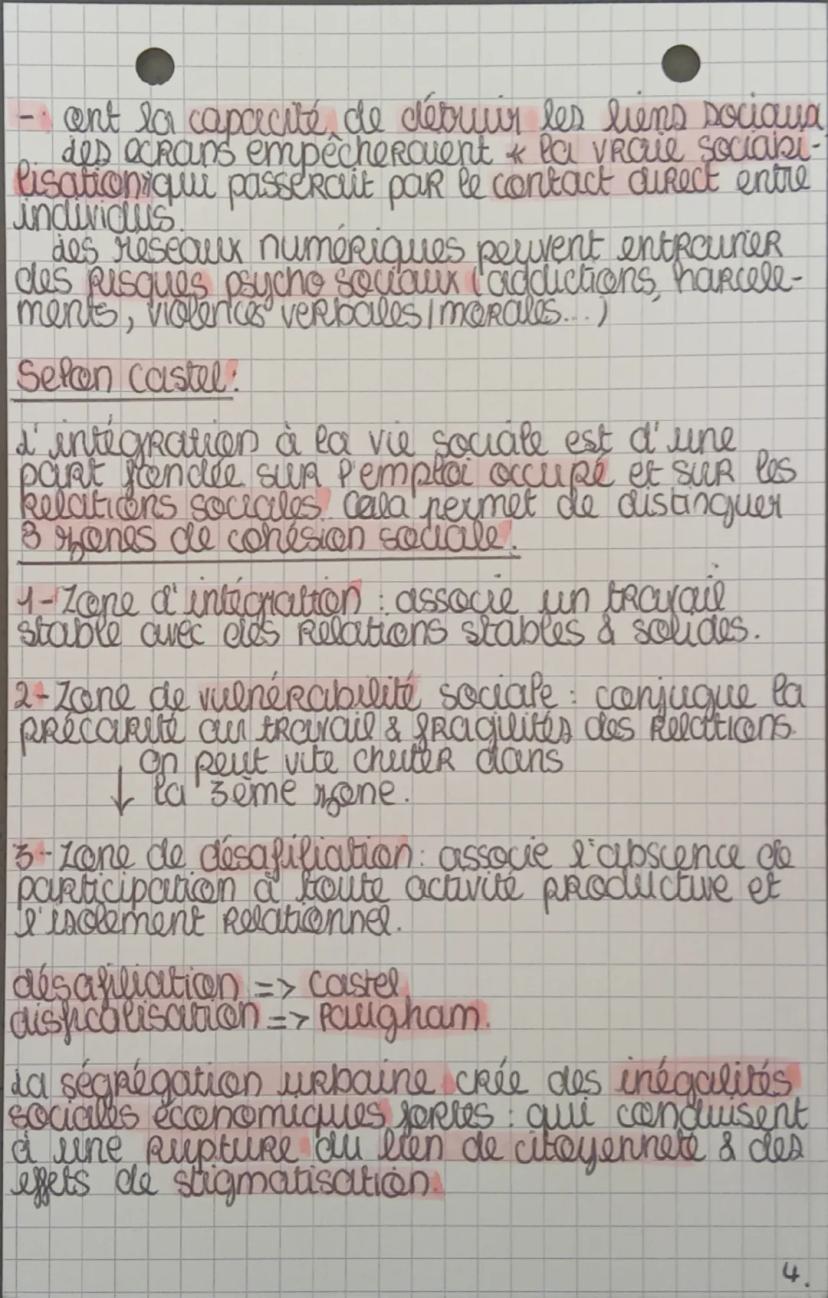 - ont la capacité de détruir les liens sociaux
des ecrans empêcheraient * la vraie sociabi-
lisation* qui passerait par le contact direct entre
individus.
des reseaux numériques peuvent entrainer
des risques psycho sociaux (addictions, harcele-
ments, violences verbales/morales...)
Selon Castel:
L'intégration à la vie sociale est d'une
part fondée sur l'emploi occupé et sur les
relations sociales. Cela permet de distinguer
3 zones de cohésion sociale.
1- Zone d'intégration : associe un travail
stable avec des relations stables & solides.
2- Zone de vulnérabilité sociale : conjugue la
précarité au travail & fragilités des relations.
↓ on peut vite chuter dans
la 3ème zone.
3- Zone de désafiliation : associe l'abscence de
participation à toute activité productive et
l'isolement relationnel.
désafiliation => Castel
disficalisation => Paugham.
La ségrégation urbaine crée des inégalités
sociales économiques fortes : qui conduisent
à une rupture du lien de citoyenneté & des
effets de stigmatisation.
4.